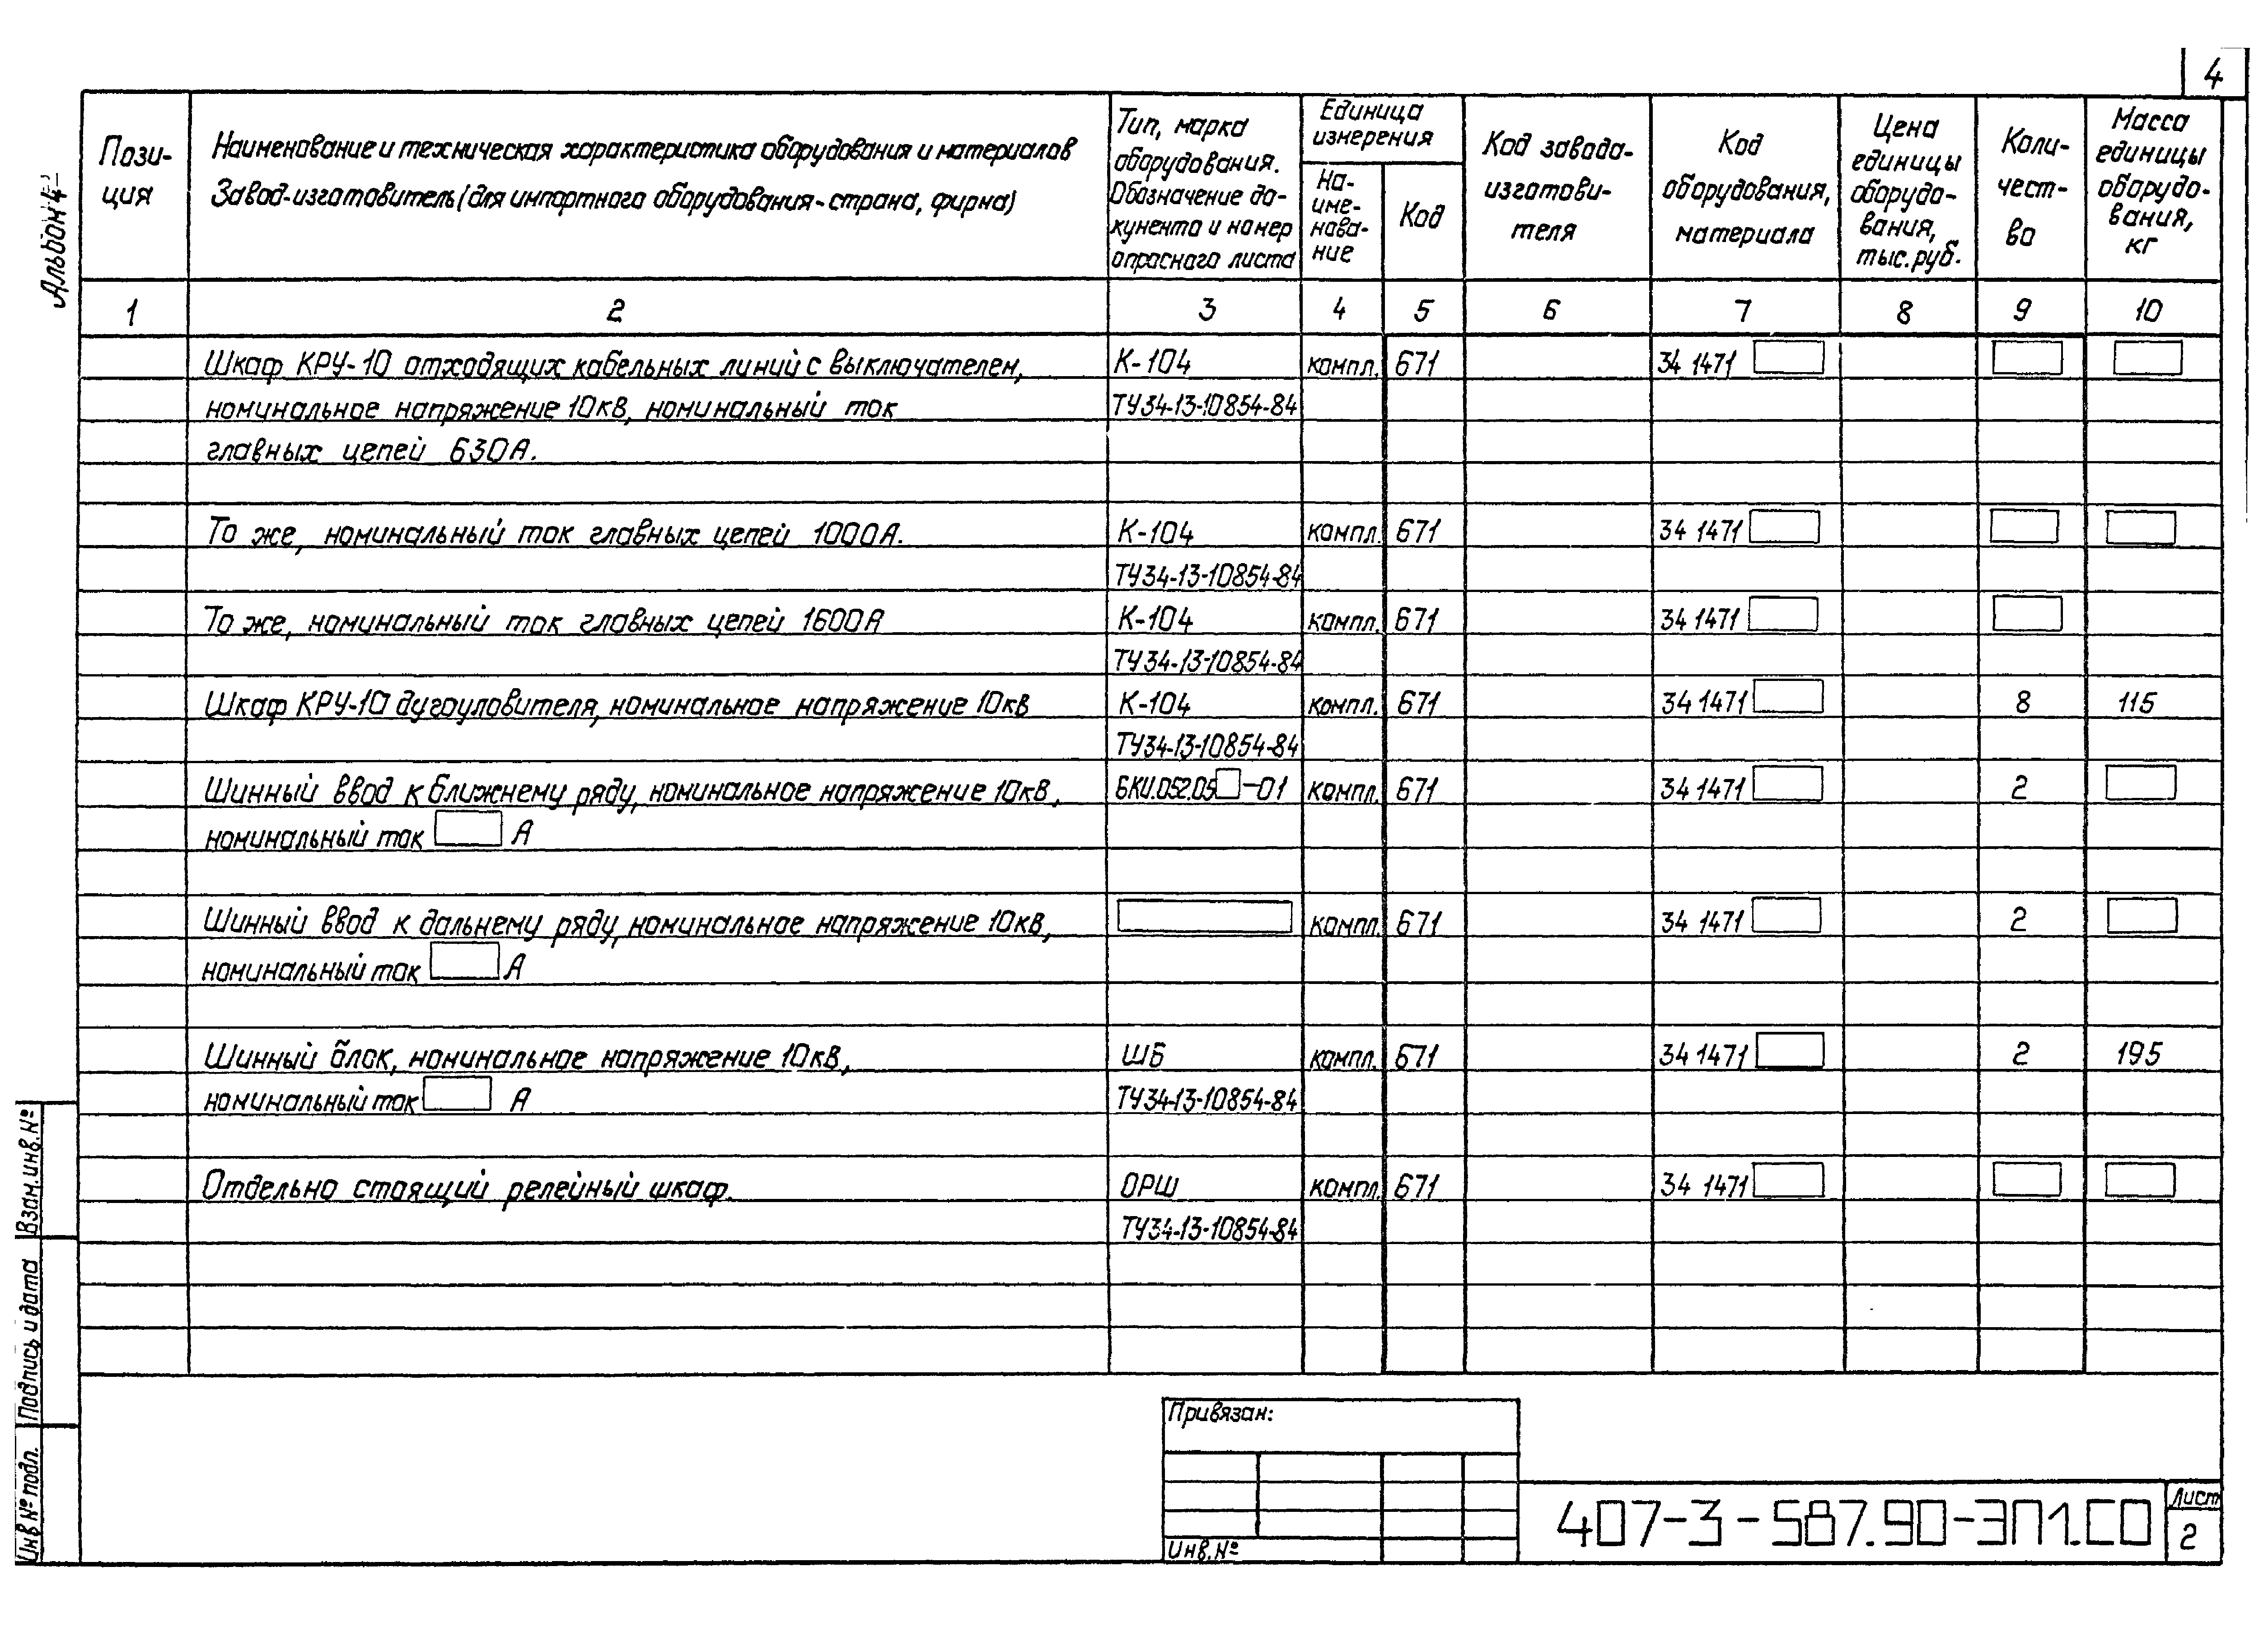 4
Альбом 4
Пози-
ция
Наименование и техническая характеристика оборудования и материалов
Завод-изготовитель (для импортного оборудования - страна, фирма)
Тип, марка
оборудования.
Обозначение до-
кумента и номер
опросного листа
Единица
измерения
На-
име-
нова-
ние
Код
Код завода-
изготови-
теля
Код
оборудования,
материала
Цена
единицы
оборудо-
вания,
тыс. руб.
Коли-
чест-
во
Масса
единицы
оборудо-
вания,
кг
1 2 3 4 5 6 7 8 9 10
Шкаф КРУ-10 отходящих кабельных линий с выключателем, К-104 компл. 671 34 1471
номинальное напряжение 10кВ, номинальный ток ТУ34-13-10854-84
главных цепей 630А.
То же, номинальный ток главных цепей 1000А. К-104 компл. 671 34 1471
ТУ34-13-10854-84
То же, номинальный ток главных цепей 1600А К-104 компл. 671 34 1471
ТУ34-13-10854-84
Шкаф КРУ-10 дугоуловителя, номинальное напряжение 10кВ К-104 компл. 671 34 1471 8 115
ТУ34-13-10854-84
Шинный ввод к ближнему ряду, номинальное напряжение 10кВ, БКИ.052.05 -01 компл. 671 34 1471 2
номинальный ток А
Шинный ввод к дальнему ряду, номинальное напряжение 10кВ, компл. 671 34 1471 2
номинальный ток А
Шинный блок, номинальное напряжение 10кВ, ШБ компл. 671 34 1471 2 195
номинальный ток А ТУ34-13-10854-84
Отдельно стоящий релейный шкаф. ОРШ компл. 671 34 1471
ТУ34-13-10854-84
Взам. инв. №
Подпись и дата
Инв № подл.
Привязан:
Инв. №
407-3-587.90-ЭП1.СО
Лист
2